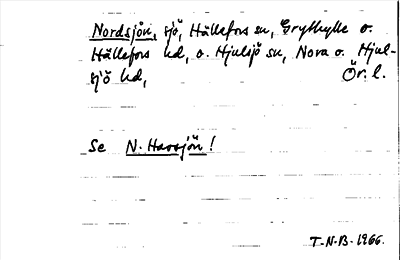 Nordsjön, sjö, Hällefors sn, Grythytte o.
Hällefors hd, o. Hjulsjö sn, Nora o. Hjul-
sjö hd, Ör. l.
Se N. Havsjön!
T-N-B-1966.